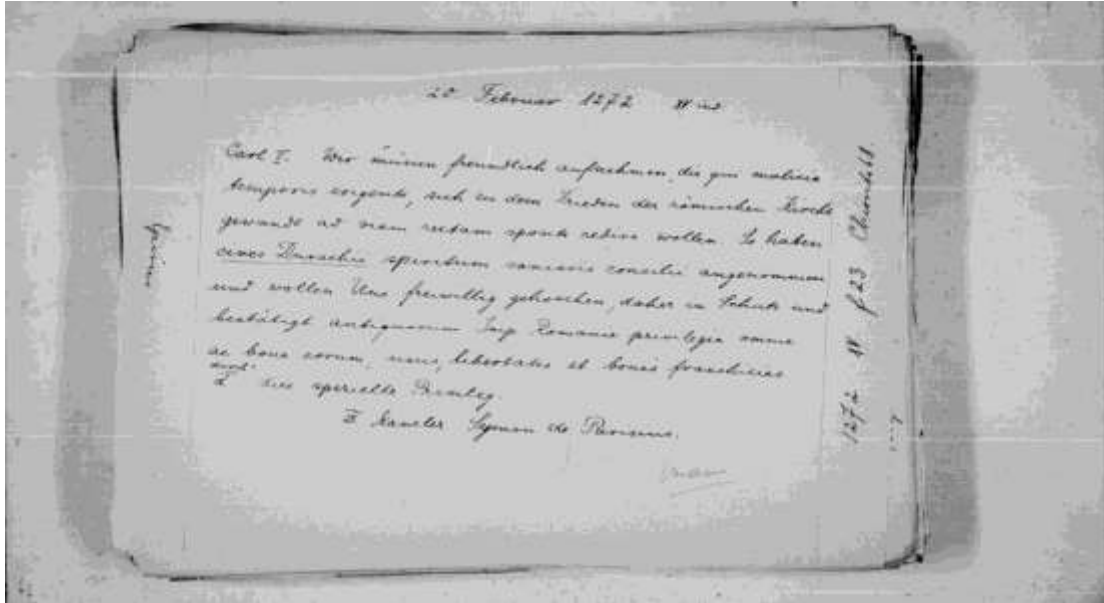 20 Februar 1272 XV ind
Carl I. Wir müssen freundlich aufnehmen, die qui malicia
temporis exigente, sich zu dem Frieden der römischen Kirche
gewandt ad viam rectam sponte redire wollen. So haben
cives Durachii spiritum sanioris consilii angenommen
und wollen Uns freiwillig gehorchen, daher in Schutz und
bestätigt antiquorum Imp Romanie privilegia omnia
ac bonos eorum, usus, libertates et bonas franchicias
dies spezielle Privileg.
Kanzler Symon de Parisius.
1272 XV f 23 Chiarito 68.